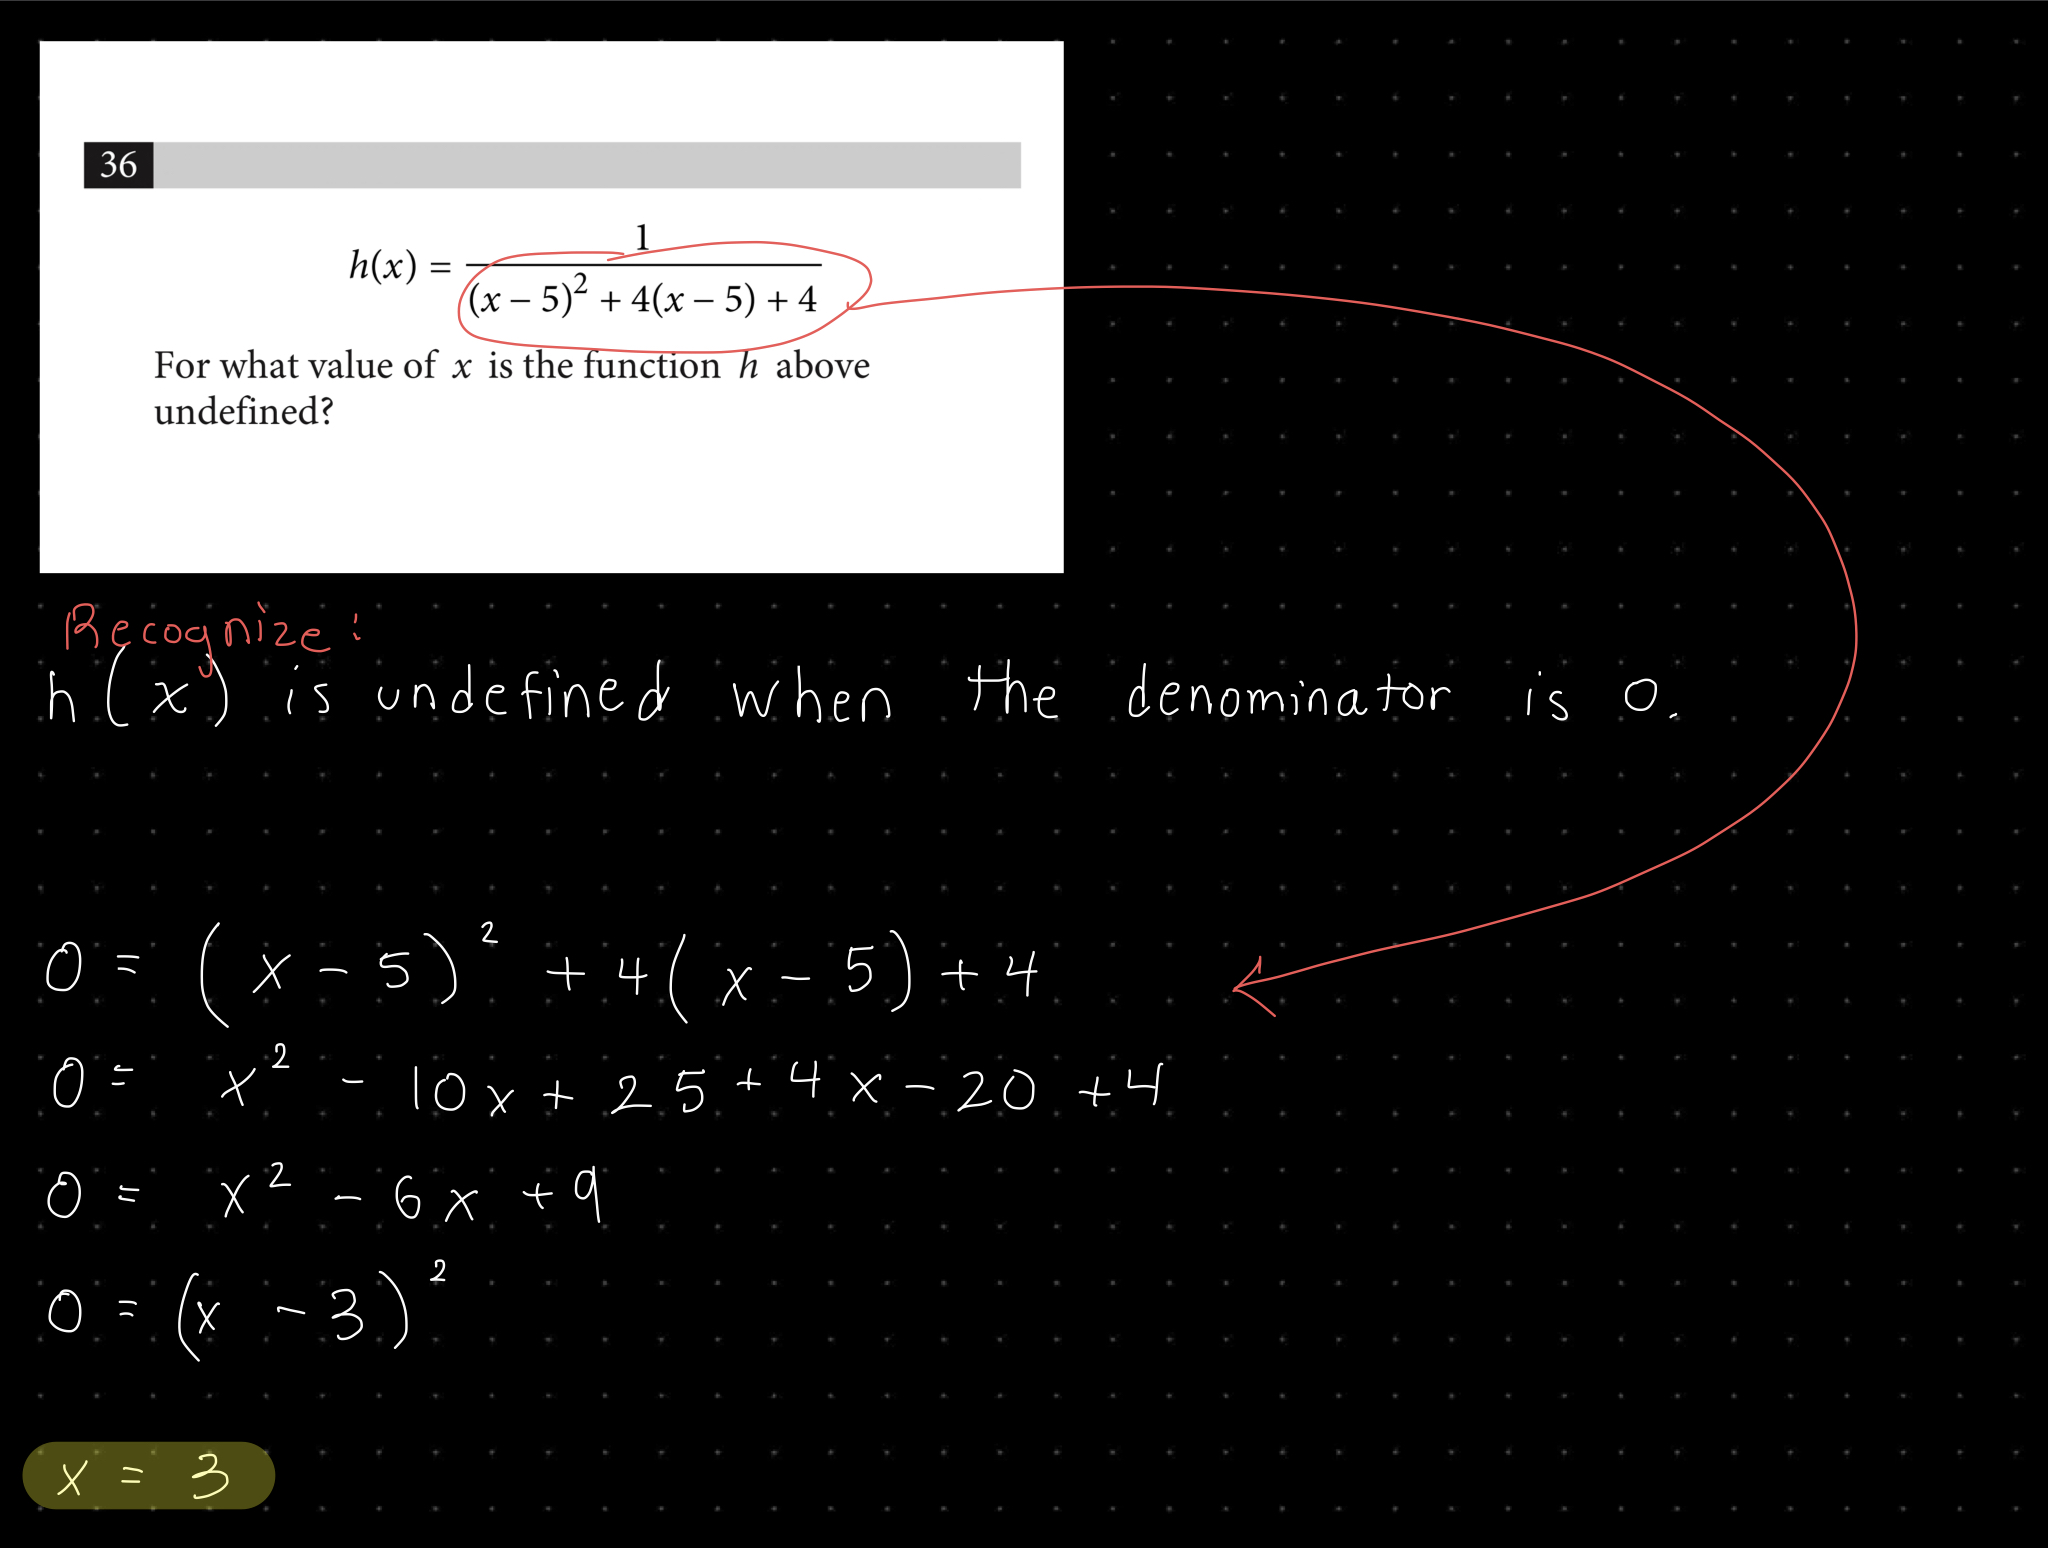 36
h(x) = 1 / ((x − 5)² + 4(x − 5) + 4)
For what value of x is the function h above
undefined?
Recognize:
h(x) is undefined when the denominator is 0.
0 = (x − 5)² + 4(x − 5) + 4
0 = x² − 10x + 25 + 4x − 20 + 4
0 = x² − 6x + 9
0 = (x − 3)²
x = 3